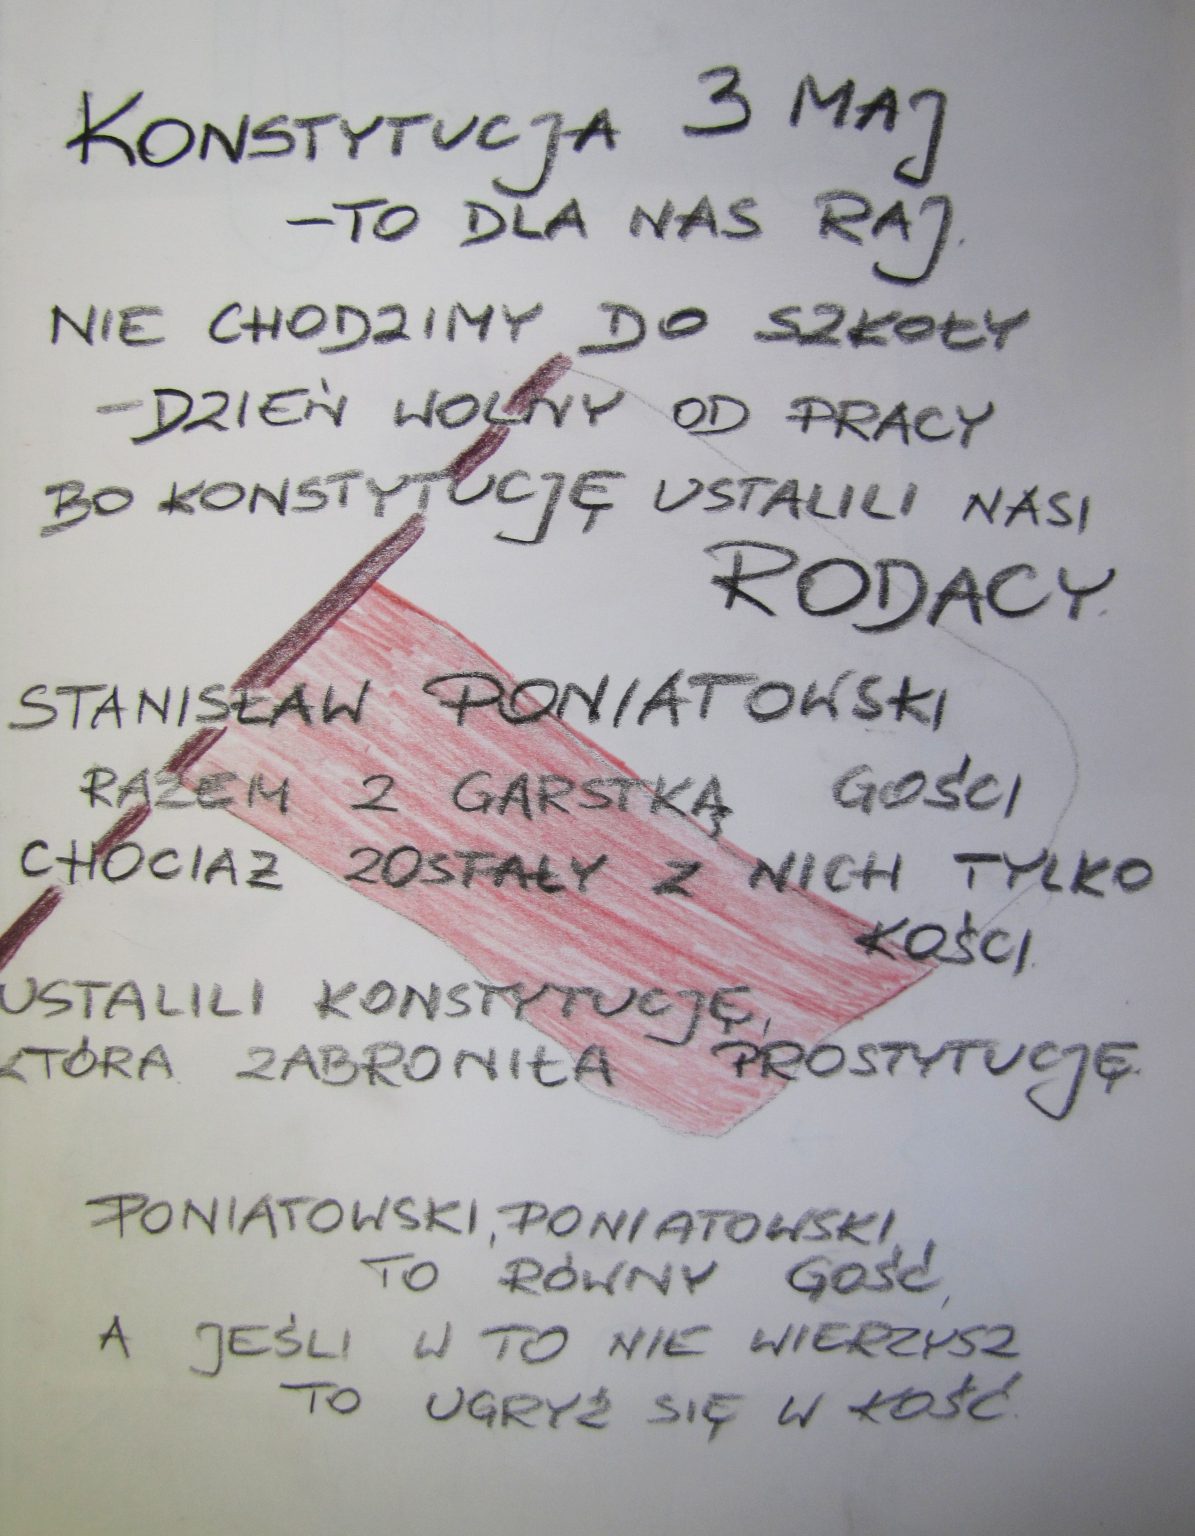 KONSTYTUCJA 3 MAJ
-TO DLA NAS RAJ.
NIE CHODZIMY DO SZKOŁY
-DZIEŃ WOLNY OD PRACY
BO KONSTYTUCJĘ USTALILI NASI
RODACY.
STANISŁAW PONIATOWSKI
RAZEM Z GARSTKĄ GOŚCI
CHOCIAZ ZOSTAŁY Z NICH TYLKO
KOŚCI.
USTALILI KONSTYTUCJĘ,
KTÓRA ZABRONIŁA PROSTYTUCJĘ.
PONIATOWSKI, PONIATOWSKI,
TO RÓWNY GOŚĆ,
A JEŚLI W TO NIE WIERZYSZ
TO UGRYŹ SIĘ W KOŚĆ.